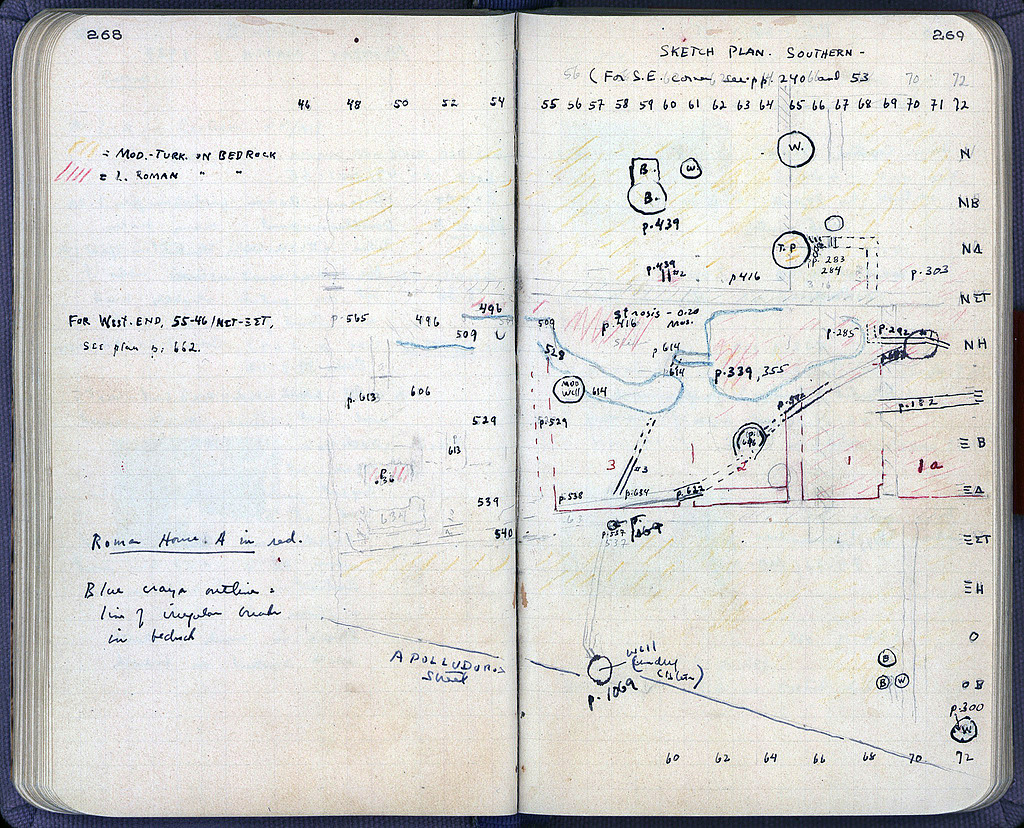 268
46 48 50 52 54
= MOD.-TURK. ON BEDROCK
= L. ROMAN " "
FOR WEST. END, 55-46/ΝΣΤ-ΞΣΤ,
SEE plan p. 662.
p. 565
496
496
509
p. 613
606
529
613
p. 36
539
634
540
Roman House A in red.
Blue crayon outline =
line of irregular break
in bedrock
APOLLODOROS
Street
269
SKETCH PLAN. SOUTHERN -
(For S.E. corner see pp. 240 and 53
70 72
55 56 57 58 59 60 61 62 63 64 65 66 67 68 69 70 71 72
W.
N
B. W.
B.
ΝΒ
p. 439
T.P.
ΝΔ
p. 283
284
p. 303
p. 439
#2
p 416
ΝΣΤ
Strosis - 0.20
509
p. 416
p. 285
p. 292
ΝΗ
528
p 614
614
p. 339, 355
MOD
WELL
614
p. 182
Ξ
p. 529
ΞΒ
3
#3
1
2
1
1a
p. 538
p. 634
p. 632
ΞΔ
p. 557
537
ΞΣΤ
ΞΗ
Ο
well
p. 1069
B
B W
ΟΒ
p. 300
W
60 62 64 66 68 70 72